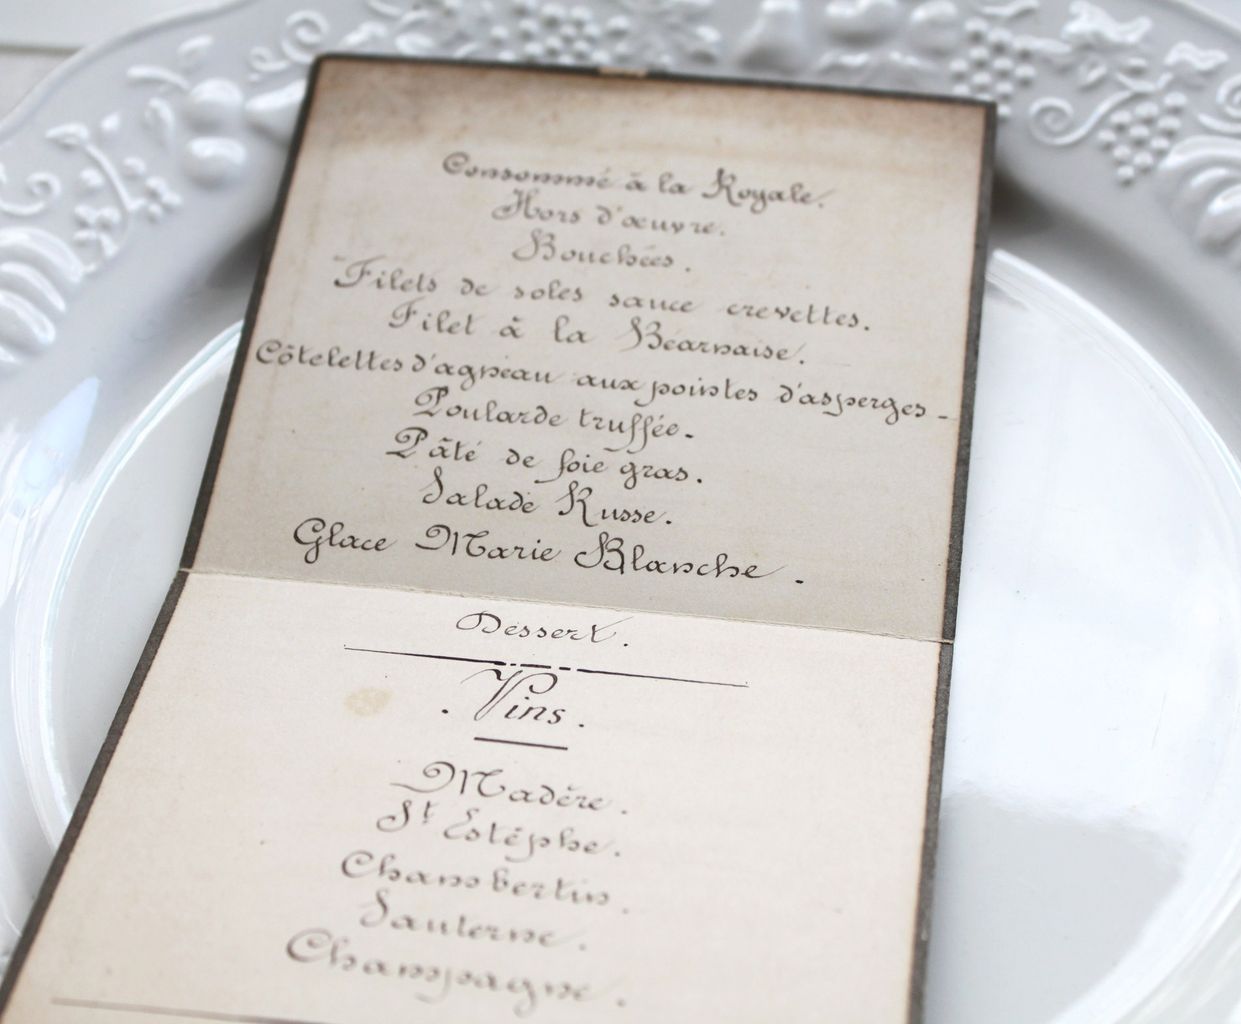 Consommé à la Royale.
Hors d'œuvre.
Bouchées.
Filets de soles sauce crevettes.
Filet à la Béarnaise.
Côtelettes d'agneau aux pointes d'asperges -
Poularde truffée.
Pâté de foie gras.
Salade Russe.
Glace Marie Blanche.
Dessert.
. Vins.
Madère.
St Estèphe.
Chambertin.
Sauterne.
Champagne.